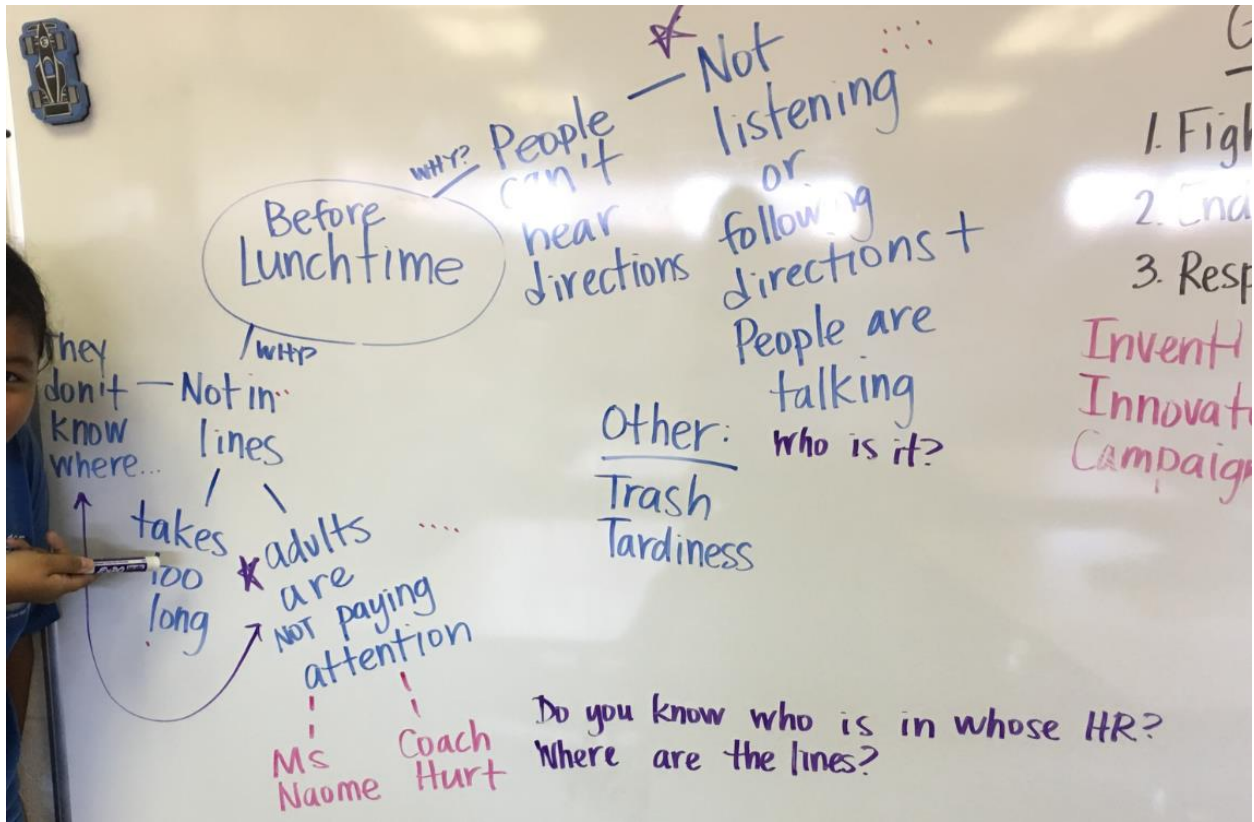 Before
Lunchtime
WHY?
People
can't
hear
directions
Not
listening
or
following
directions +
People are
talking
who is it?
WHY
Not in
lines
They
don't
know
where...
takes
too
long
adults
are
NOT paying
attention
Ms
Naome
Coach
Hurt
Other:
Trash
Tardiness
Do you know who is in whose HR?
Where are the lines?
G
1. Figh
2. End
3. Resp
Invent
Innovat
Campaign